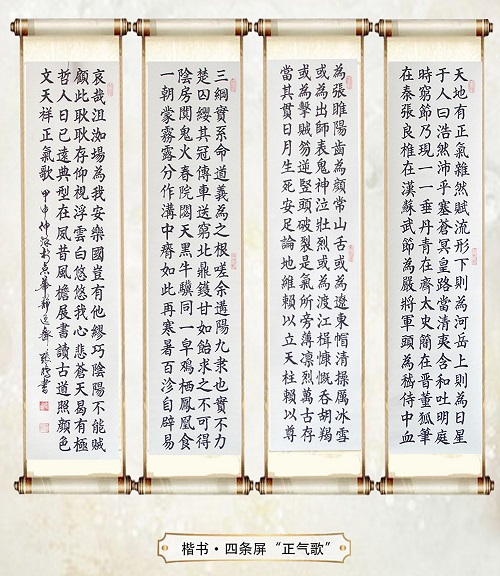 天地有正氣雜然賦流形下則為河岳上則為日星
于人曰浩然沛乎塞蒼冥皇路當清爽含和吐明庭
時窮節乃現一一垂丹青在齊太史簡在晉董狐筆
在秦張良椎在漢蘇武節為嚴將軍頭為嵇侍中血
為張睢陽齒為顏常山舌或為遼東帽清操厲冰雪
或為出師表鬼神泣壯烈或為渡江楫慷慨吞胡羯
或為擊賊笏逆豎頭破裂是氣所旁薄凛烈萬古存
當其貫日月生死安足論地維賴以立天柱賴以尊
三綱實系命道義為之根嗟余遘陽九隸也實不力
楚囚纓其冠傳車送窮北鼎鑊甘如飴求之不可得
陰房闃鬼火春院閟天黑牛驥同一皁鸡栖鳳凰食
一朝蒙霧露分作溝中瘠如此再寒暑百沴自辟易
哀哉沮洳場為我安樂國豈有他繆巧陰陽不能賊
顧此耿耿存仰視浮雲白悠悠我心悲蒼天曷有極
哲人日已遠典型在夙昔風檐展書讀古道照顏色
文天祥正氣歌 甲申仲 書
楷书·四条屏“正气歌”